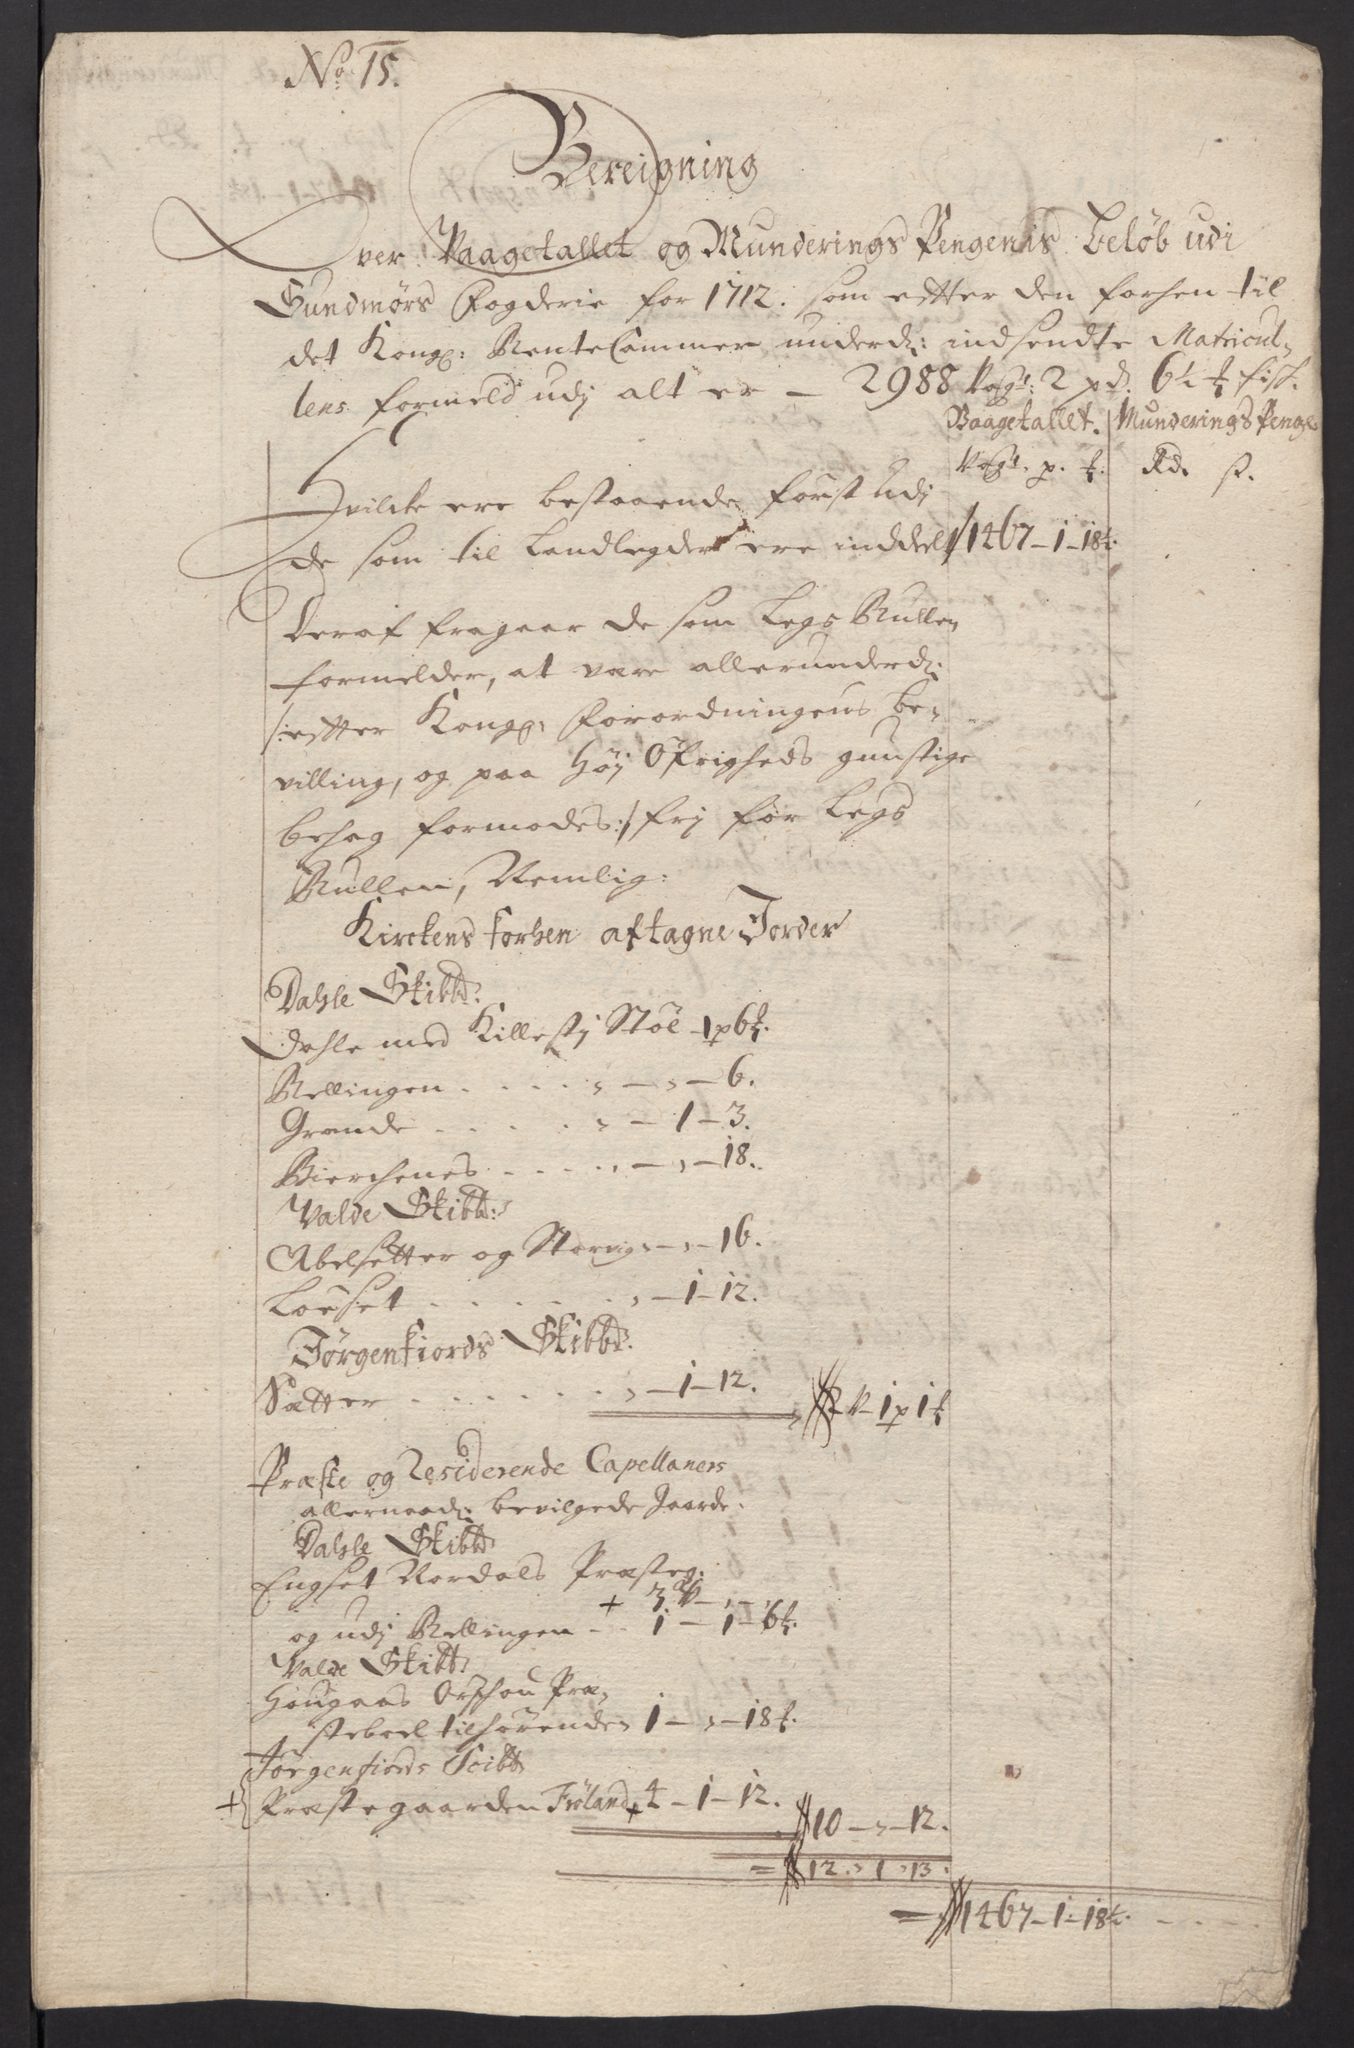 No 15.
Bereigning
Over Vaagetallet og Munderings Pengenis beløb udi
Sundmørs Fogderie for 1712. som efter den forhen til
det Kongl: Rente Cammer underd: indsendte Matricul-
lens formeld udj alt er — 2988 Vog: 2 pd. 6½ ℔ fisk.
Vaagetallet. Munderings Penge
Vog: p. ℔. Rd. s.
Hvilcke ere bestaaende først udj
de som til Landlegder ere inddeelt 1467-1-18½.
Deraf fragaar de som Legs Rullen
formelder, at være allerunderd:
/:efter Kongl: Forordningens be-
villing, og paa Høj Øfrigheds gunstige
behag formodes:/ frj for Legs
Rullen, Nemlig:
Kirckens forhen aftagne Jorder
Dahle Skibbd:
Dahle med Killestj Støl - 1 p 6 ℔.
Rellingen . . . . , — , — 6.
Grande . . . . . , — 1 — 3.
Bierchenes . . . . , — , — 18.
Valde Skibbd:
Abelsetter og Storvig , — , — 16.
Louset . . . . . . , — 1 — 12.
Jørgenfiords Skibbd.
Sætter . . . . . . , — 1 — 12. 2 V — 1 p 1 ℔
Præste og Residerende Capellaners
allernaad: bevilgede Gaarde.
Dahle Skibbd
Engset Nordals Præsteg:
+ 3 V — , — ,
og udj Rellingen . . 1 — 1 — 6 ℔.
Valde Skibbd
Hougaas Ørschou Præ-
stebool tilhørende 1 — , — 18 ℔.
Jørgenfiords Scibbd
+ Præstegaarden Føland + 4 — 1 — 12.
10 — , — 12.
= 12 . 1 . 13.
= 1467 — 1 — 18½.